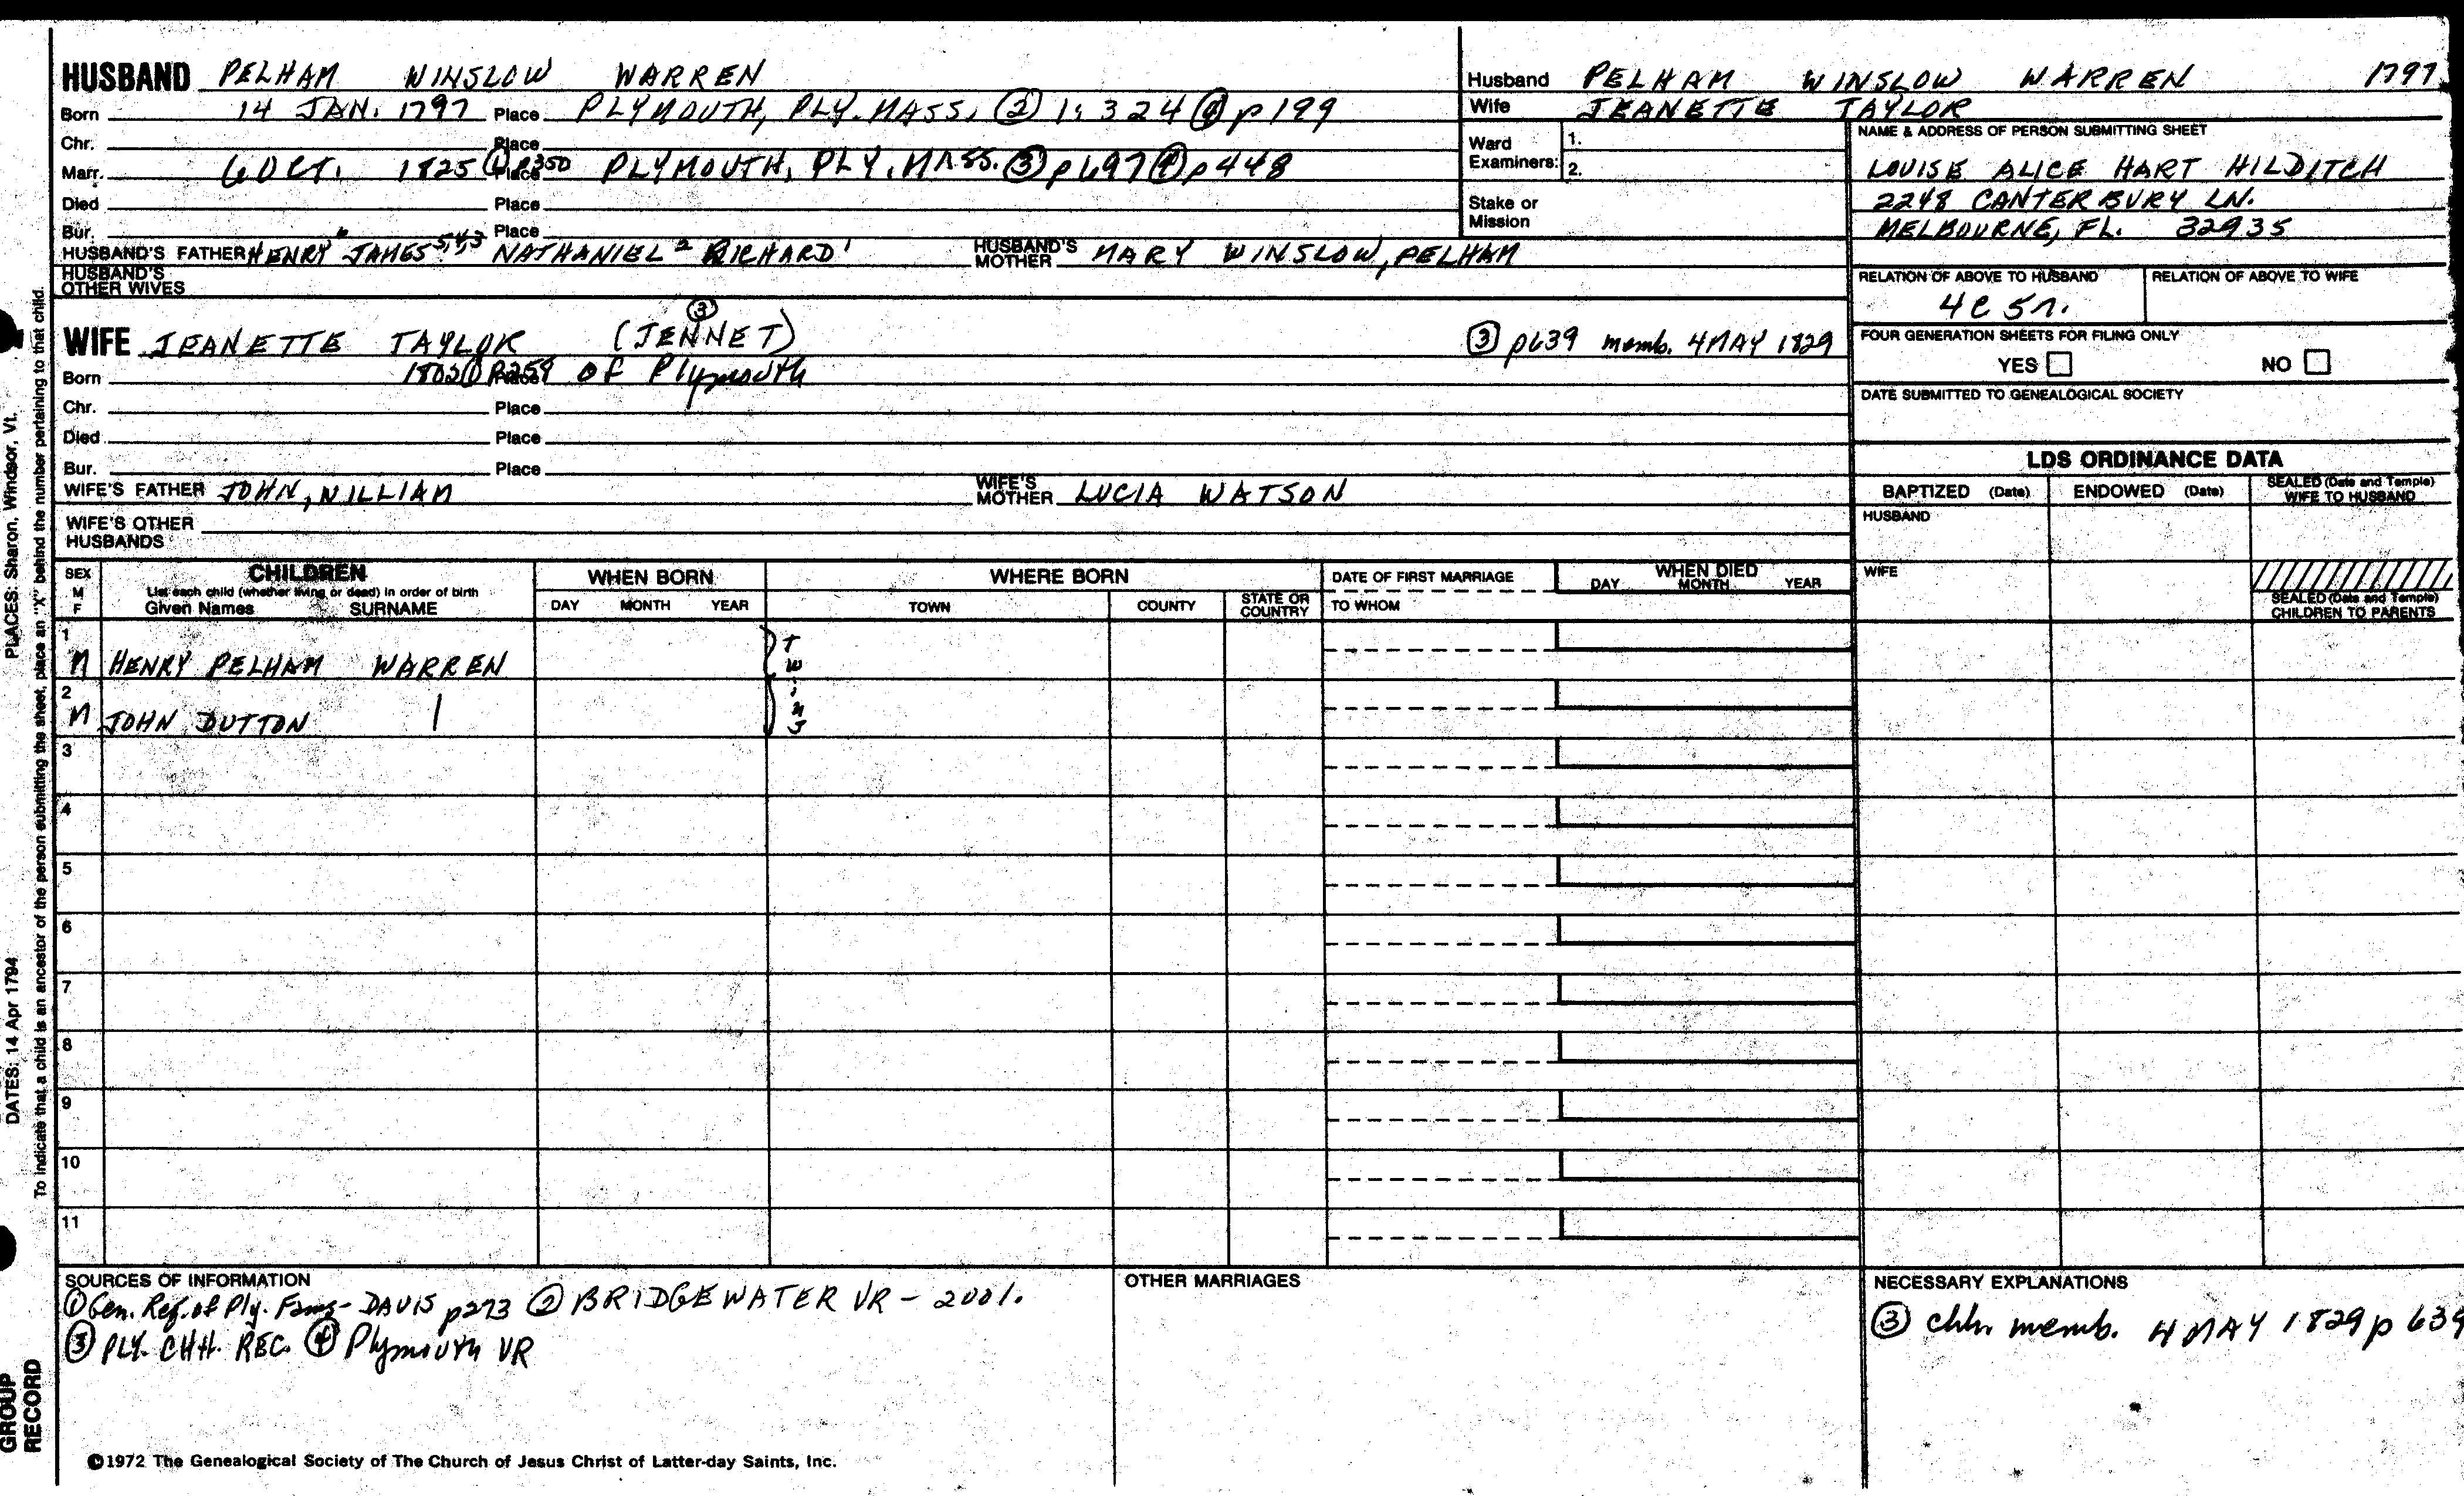 HUSBAND PELHAM WINSLOW WARREN
Born 14 JAN. 1797 Place PLYMOUTH, PLY. MASS. ② 1: 324 ④ p 199
Chr. Place
Marr. 6 OCT. 1825 ① p350 Place PLYMOUTH, PLY. MASS. ③ p 697 ④ p 448
Died Place
Bur. Place
HUSBAND'S FATHER HENRY 6 JAMES 5,4,3 NATHANIEL 2 RICHARD 1 HUSBAND'S MOTHER MARY WINSLOW, PELHAM
HUSBAND'S OTHER WIVES
WIFE JEANETTE TAYLOR (JENNET) ③ ③ p639 memb. 4 MAY 1829
Born 1802 ① P259 Place of Plymouth
Chr. Place
Died Place
Bur. Place
WIFE'S FATHER JOHN, WILLIAM WIFE'S MOTHER LUCIA WATSON
WIFE'S OTHER HUSBANDS
Husband PELHAM WINSLOW WARREN 1797
Wife JEANETTE TAYLOR
Ward Examiners: 1.
2.
Stake or Mission
NAME & ADDRESS OF PERSON SUBMITTING SHEET
LOUISE ALICE HART HILDITCH
2248 CANTERBURY LN.
MELBOURNE, FL. 32935
RELATION OF ABOVE TO HUSBAND RELATION OF ABOVE TO WIFE
4C 5r.
FOUR GENERATION SHEETS FOR FILING ONLY
YES NO
DATE SUBMITTED TO GENEALOGICAL SOCIETY
LDS ORDINANCE DATA
BAPTIZED (Date) ENDOWED (Date) SEALED (Date and Temple) WIFE TO HUSBAND
HUSBAND
WIFE
SEALED (Date and Temple) CHILDREN TO PARENTS
SEX M F CHILDREN List each child (whether living or dead) in order of birth Given Names SURNAME
WHEN BORN DAY MONTH YEAR
WHERE BORN TOWN COUNTY STATE OR COUNTRY
DATE OF FIRST MARRIAGE TO WHOM
WHEN DIED DAY MONTH YEAR
1 M HENRY PELHAM WARREN Twins
2 M JOHN DUTTON |
3
4
5
6
7
8
9
10
11
SOURCES OF INFORMATION
① Gen. Reg. of Ply. Fams - DAVIS p273 ② BRIDGEWATER VR - 2001.
③ PLY. CHH. REC. ④ Plymouth VR
OTHER MARRIAGES
NECESSARY EXPLANATIONS
③ chh. memb. 4 MAY 1829 p 639
©1972 The Genealogical Society of The Church of Jesus Christ of Latter-day Saints, Inc.
PLACES: Sharon, Windsor, Vt.
DATES: 14 Apr 1794
To indicate that a child is an ancestor of the person submitting the sheet, place an "X" behind the number pertaining to that child.
GROUP RECORD